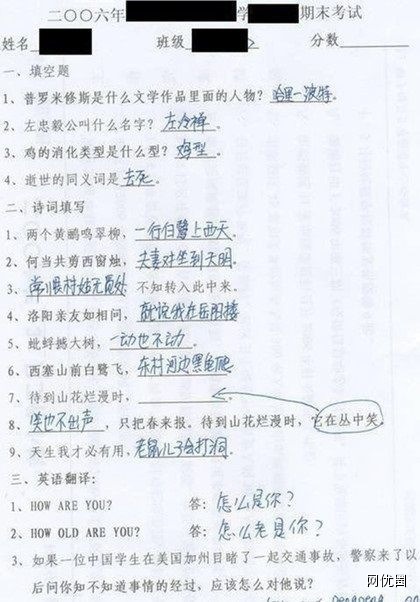 二〇〇六年 学 期末考试
姓名 班级 分数
一、填空题
1、普罗米修斯是什么文学作品里面的人物？哈里-波特。
2、左忠毅公叫什么名字？左冷禅。
3、鸡的消化类型是什么型？鸡型。
4、逝世的同义词是去死。
二、诗词填写
1、两个黄鹂鸣翠柳，一行白鹭上西天。
2、何当共剪西窗烛，夫妻对坐到天明。
3、常恨村姑无觅处 不知转入此中来。
4、洛阳亲友如相问，就说我在岳阳楼
5、蚍蜉撼大树，一动也不动。
6、西塞山前白鹭飞，东村河边黑龟爬
7、待到山花烂漫时，
8、笑也不出声，只把春来报。待到山花烂漫时，它在丛中笑。
9、天生我才必有用，老鼠儿子会打洞。
三、英语翻译：
1、HOW ARE YOU? 答：怎么是你？
2、HOW OLD ARE YOU? 答：怎么老是你？
3、如果一位中国学生在美国加州目睹了一起交通事故，警察来了以
后问你知不知道事情的经过，应该怎么对他说？
网优图